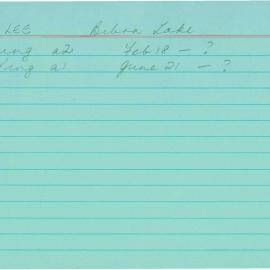 LEE Bibra Lake
ing a2 Feb 18 - ?
ing a1 June 21 - ?